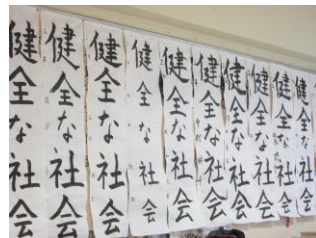 健全な社会
健全な社会
健全な社会
健全な社会
健全な社会
健全な社会
健全な社会
健全な社会
健全な社会
健全な社会